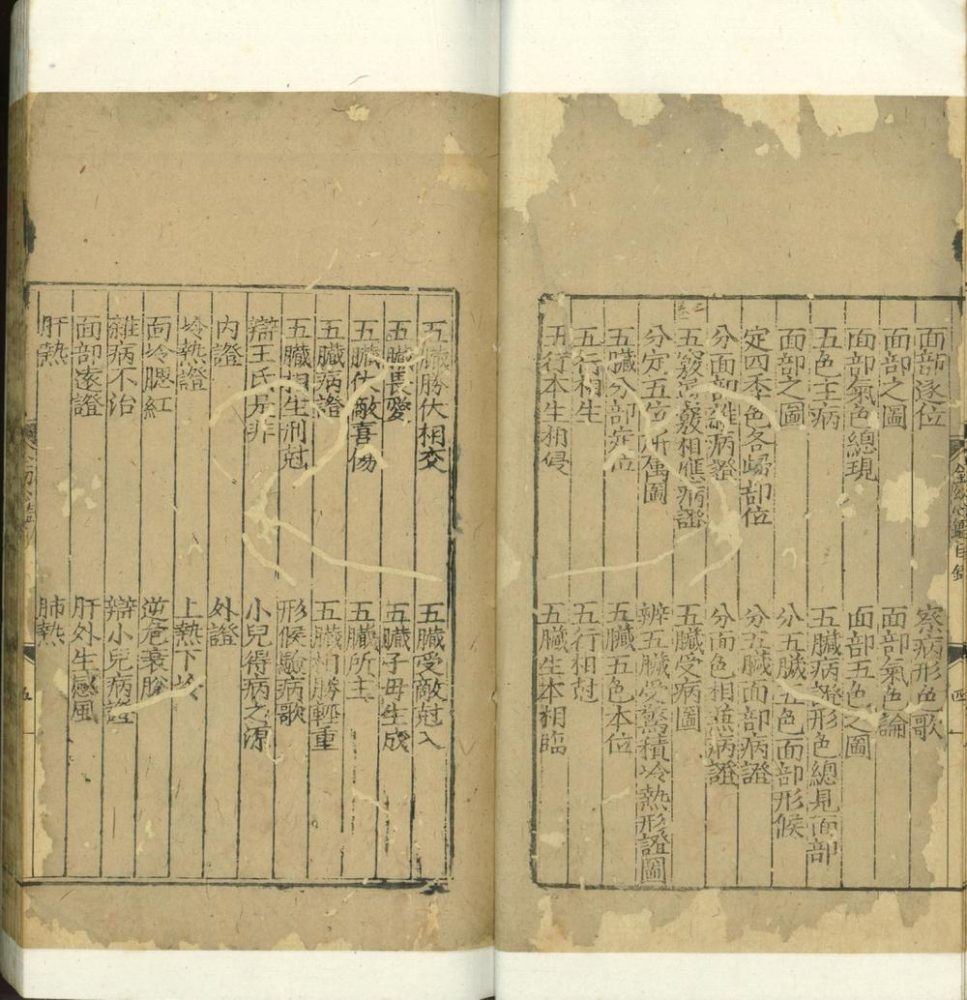 面部逐位
察病形色歌
面部之圖
面部氣色論
面部氣色總現
面部五色之圖
五色主病
五臟病證形色總見面部
面部之圖
分五臟五色面部形候
定四季色各歸部位
分五臟面部病證
分面部雜病證
分面色相兼病證
五竅相應病證
五臟受病圖
分定五位所屬圖
辨五臟受驚積冷熱形證圖
五臟分部定位
五臟五色本位
五行相生
五行相尅
五行本生相侵
五臟生本相臨
金㓜心鑑目錄
四
五臟勝伏相交
五臟受敵尅入
五臟畏愛
五臟子母生成
五臟伏敵喜傷
五臟所主
五臟病證
五臟相勝輕重
五臟相生刑尅
形候驗病歌
辯王氏是非
小兒得病之源
內證
外證
冷熱證
上熱下冷
面冷腮紅
逆危衰脫
雜病不治
辯小兒病證
面部逐證
肝外生感風
肝熱
肺熱
五